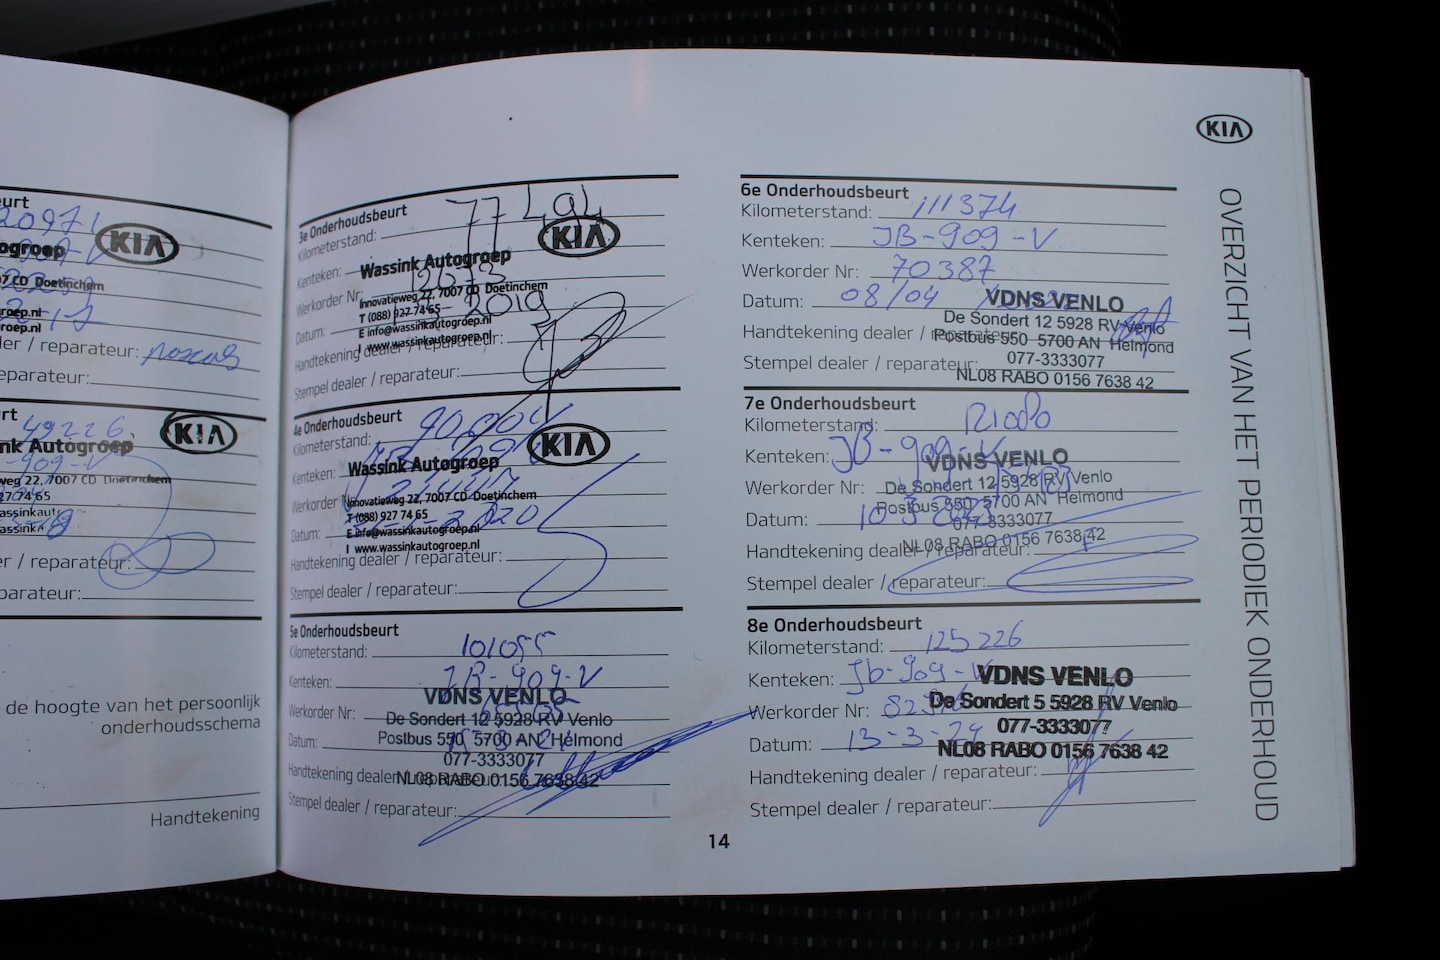 eurt
20971
KIA
ogroep
07 CD Doetinchem
groep.nl
groep.nl
ler / reparateur:
eparateur:
urt
49226
KIA
nk Autogroep
-909-V
weg 22, 7007 CD Doetinchem
927 74 65
r / reparateur:
parateur:
de hoogte van het persoonlijk
onderhoudsschema
Handtekening
3e Onderhoudsbeurt
Kilometerstand:
KIA
Kenteken:
Wassink Autogroep
Werkorder Nr:
Innovatieweg 22, 7007 CD Doetinchem
T (088) 927 74 65
2019
Datum:
E info@wassinkautogroep.nl
I www.wassinkautogroep.nl
Handtekening dealer / reparateur:
Stempel dealer / reparateur:
4e Onderhoudsbeurt
Kilometerstand:
KIA
Kenteken:
Wassink Autogroep
Werkorder Nr:
Innovatieweg 22, 7007 CD Doetinchem
T (088) 927 74 65
2020
Datum:
E info@wassinkautogroep.nl
I www.wassinkautogroep.nl
Handtekening dealer / reparateur:
Stempel dealer / reparateur:
5e Onderhoudsbeurt
Kilometerstand: 101055
Kenteken: JB-909-V
VDNS VENLO
Werkorder Nr:
De Sondert 12 5928 RV Venlo
Datum:
Postbus 550 5700 AN Helmond
077-3333077
Handtekening dealer / reparateur:
NL08 RABO 0156 7638 42
Stempel dealer / reparateur:
14
KIA
6e Onderhoudsbeurt
Kilometerstand: 111374
Kenteken: JB-909-V
Werkorder Nr: 70387
Datum: 08/04
VDNS VENLO
De Sondert 12 5928 RV Venlo
Handtekening dealer / reparateur:
Postbus 550 5700 AN Helmond
077-3333077
Stempel dealer / reparateur:
NL08 RABO 0156 7638 42
7e Onderhoudsbeurt
Kilometerstand:
Kenteken: JB-909-V
VDNS VENLO
Werkorder Nr:
De Sondert 12 5928 RV Venlo
Postbus 550 5700 AN Helmond
Datum: 10-3-2023
077-3333077
NL08 RABO 0156 7638 42
Handtekening dealer / reparateur:
Stempel dealer / reparateur:
8e Onderhoudsbeurt
Kilometerstand: 125226
Kenteken: Jb-909-V
VDNS VENLO
Werkorder Nr:
De Sondert 5 5928 RV Venlo
077-3333077
Datum: 13-3-24
NL08 RABO 0156 7638 42
Handtekening dealer / reparateur:
Stempel dealer / reparateur:
OVERZICHT VAN HET PERIODIEK ONDERHOUD